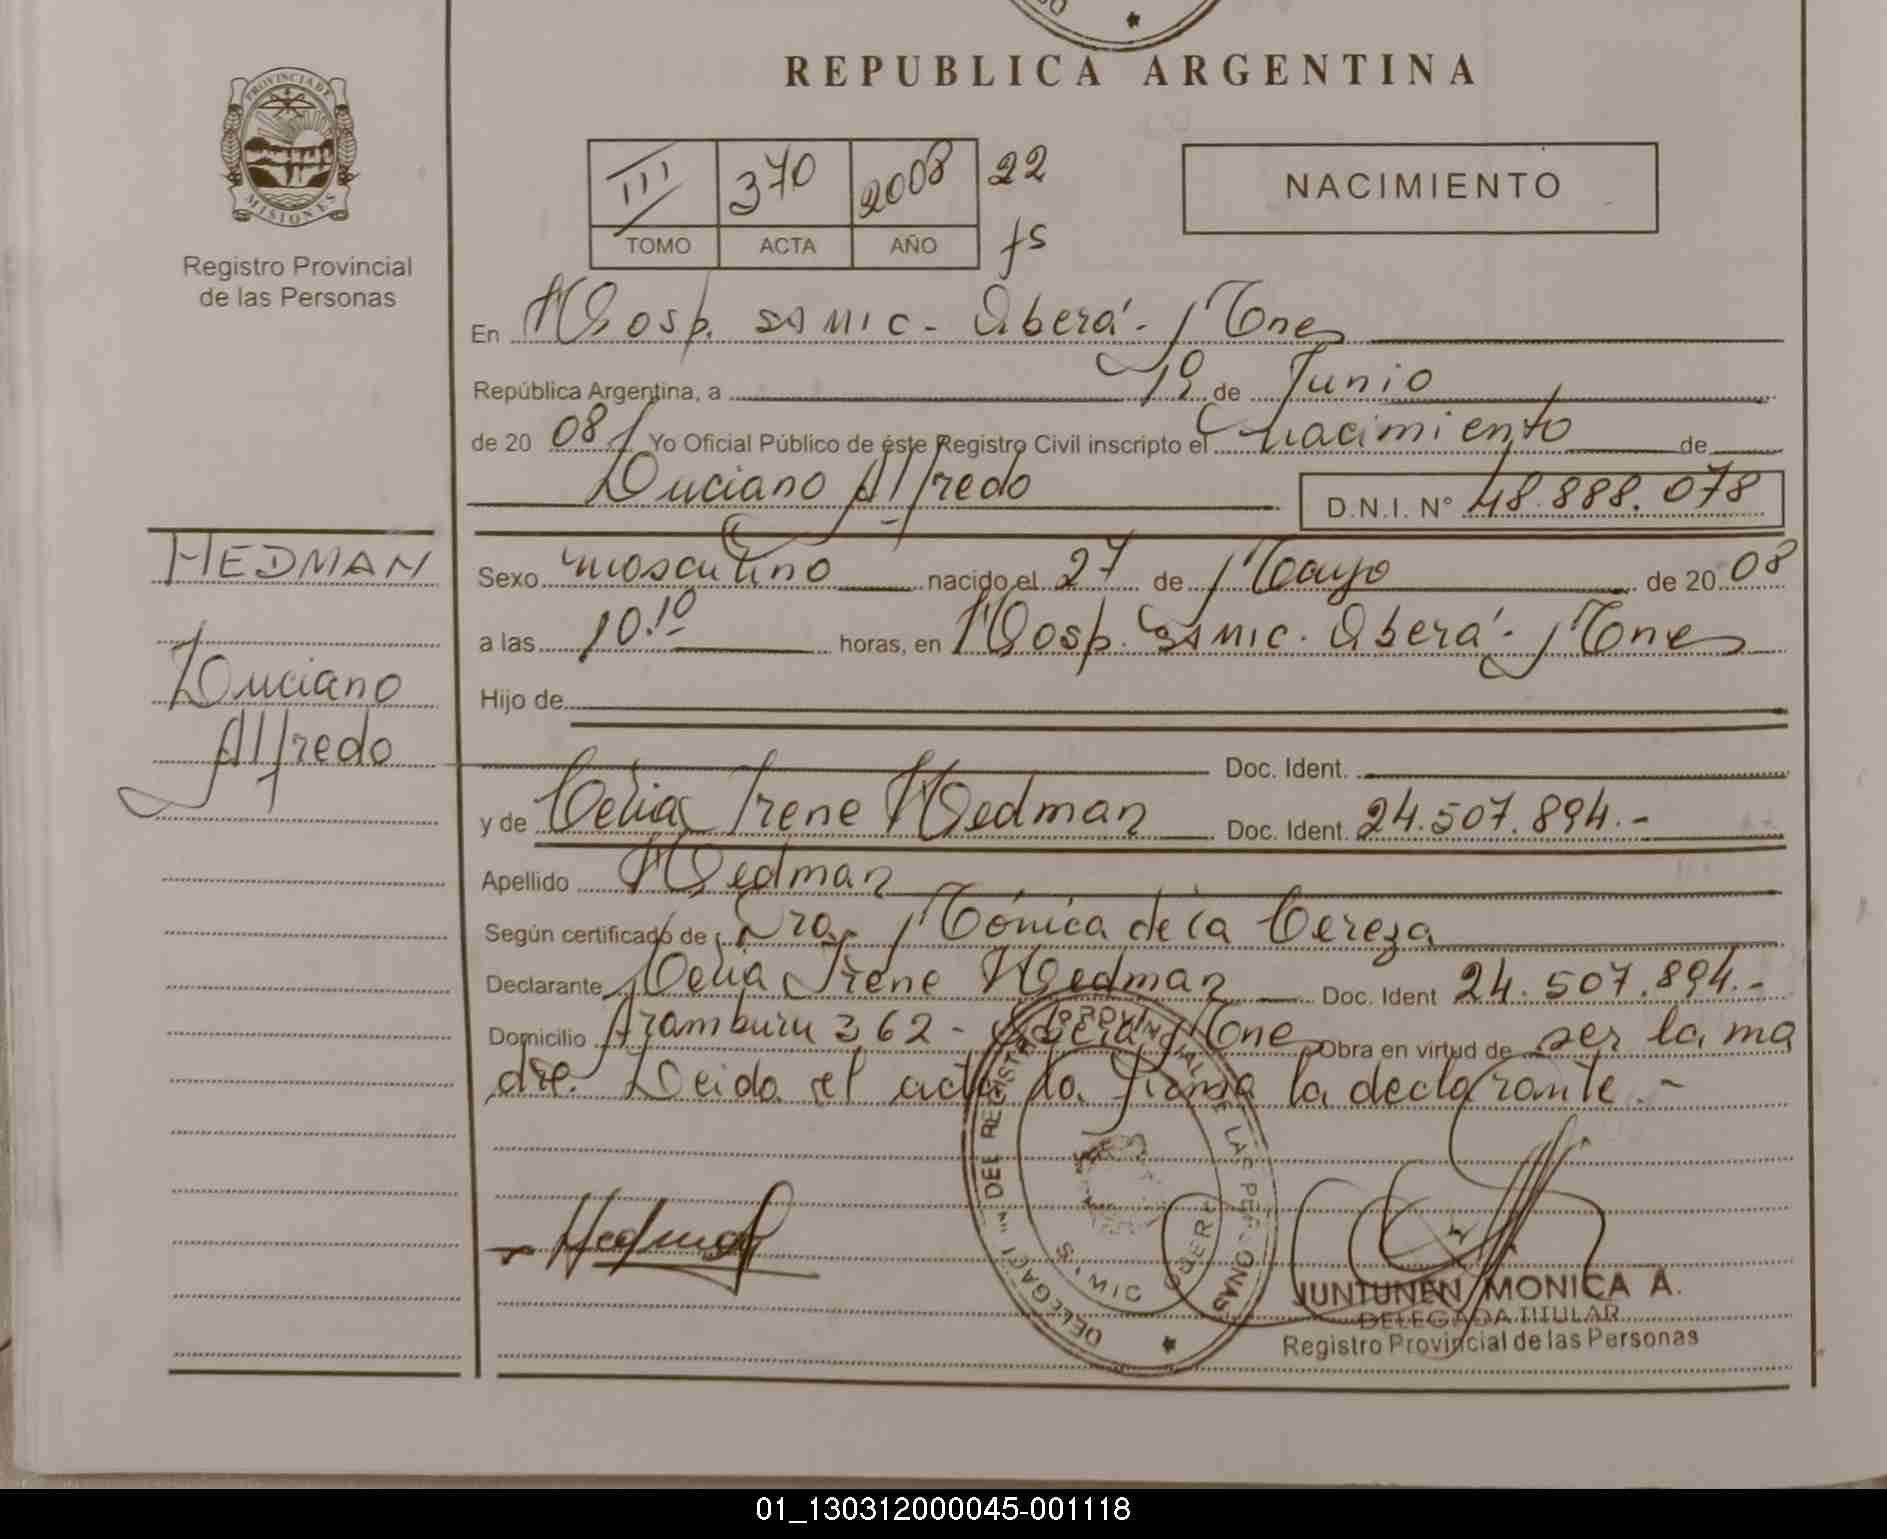 REPUBLICA ARGENTINA
PROVINCIA DE
MISIONES
Registro Provincial
de las Personas
III 370 2008 22
TOMO ACTA AÑO fs
NACIMIENTO
En Hosp. SAMIC - Oberá - Mnes
República Argentina, a 1º de Junio
de 2008 Yo Oficial Público de éste Registro Civil inscripto el nacimiento de
Luciano Alfredo D.N.I. Nº 48.888.078
HEDMAN
Luciano
Alfredo
Sexo masculino nacido el 27 de Mayo de 2008
a las 10.10 horas, en Hosp. SAMIC. Oberá - Mnes
Hijo de
Doc. Ident.
y de Celia Irene Hedman Doc. Ident. 24.507.894.-
Apellido Hedman
Según certificado de Dra. Mónica de la Cereza
Declarante Celia Irene Hedman Doc. Ident 24.507.894.-
Domicilio Aramburu 362 - Oberá Mnes Obra en virtud de ser la ma
dre. Leida el acta la firma la declarante.-
Hedman
DELEGACI DEL REGISTR PROVINCIAL DE LAS PERSONAS
SAMIC OBERA
JUNTUNEN MONICA A.
DELEGADA TITULAR
Registro Provincial de las Personas
01_130312000045-001118